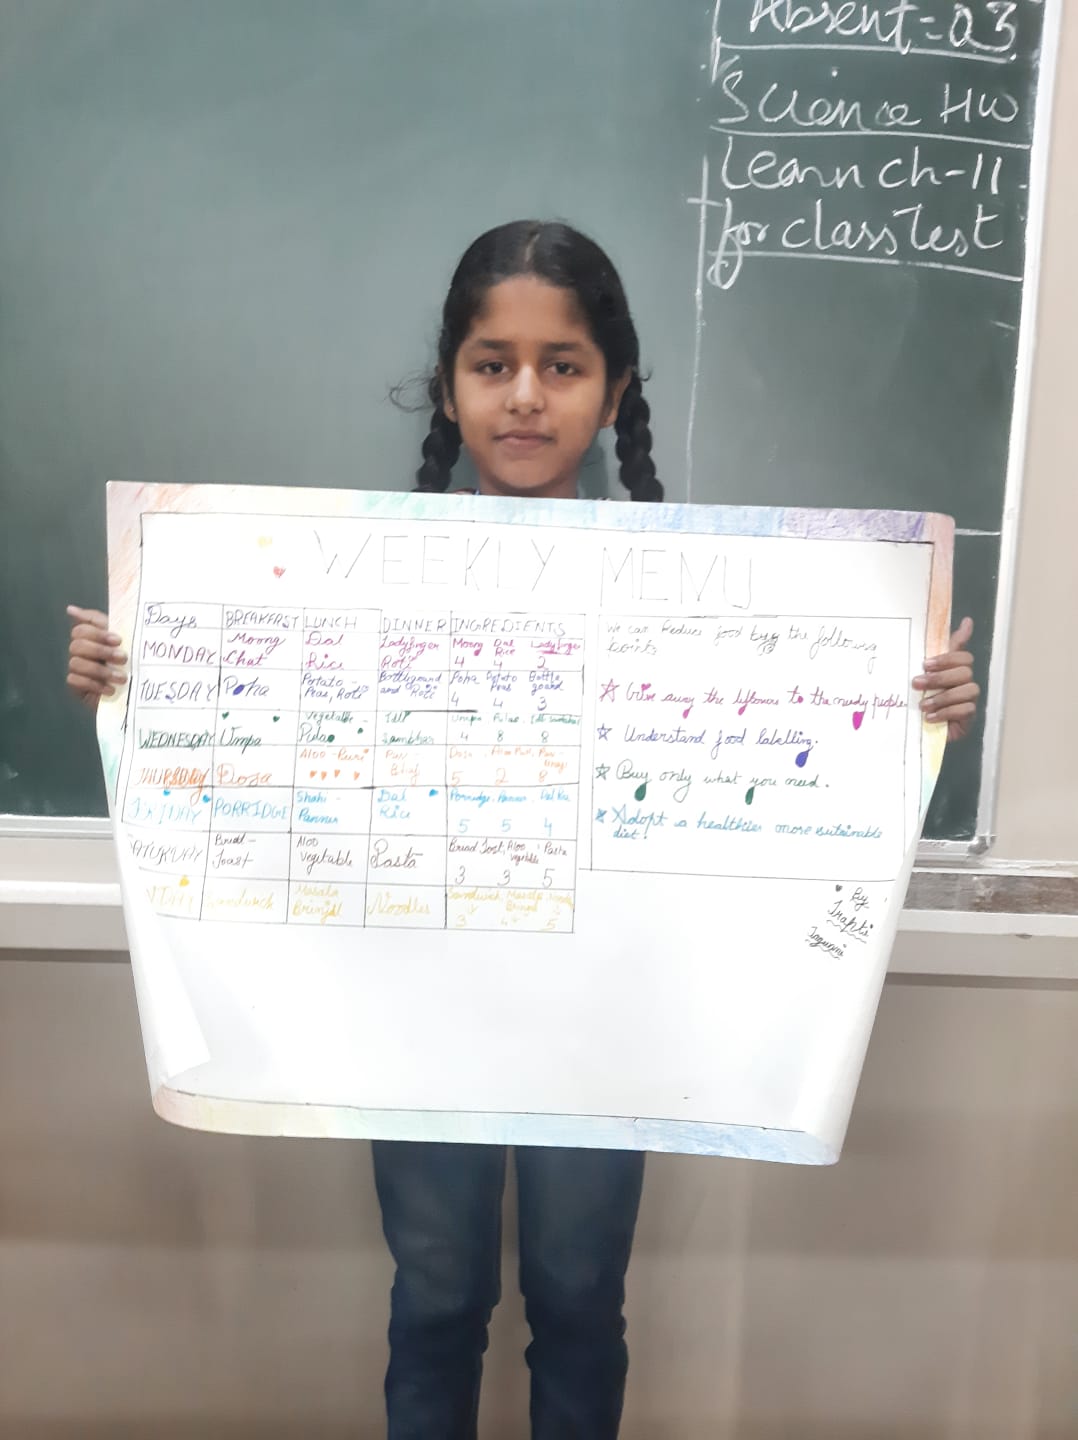 Absent = 03
Science HW
Learn ch-11
for class Test
WEEKLY MENU
Days BREAKFAST LUNCH DINNER INGREDIENTS
MONDAY Moong Chat Dal Rice Ladyfinger Roti Moong 4 Dal Rice 4 Ladyfinger 2
TUESDAY Poha Potato - Peas, Roti Bottlegourd and Roti Poha 4 Potato Peas 4 Bottle gourd 3
WEDNESDAY Umpa Vegetable - Pulao Idli Sambhar Umpa 4 Pulao 8 8
THURSDAY Dosa Aloo - Puri Dosa 5 Aloo Puri 2 8
FRIDAY PORRIDGE Shahi - Panner Dal Rice Porridge 5 Panner 5 Dal Rice 4
Bread - Toast Aloo Vegetable Pasta Bread Tost 3 Aloo vegetable 3 Pasta 5
Sandwich Masala Brinjal Noodles Sandwich 3 Masala 4 5
We can Reduce food by the following points
Give away the liftovers to the needy people
Understand food labelling.
Buy only what you need.
Adopt a healthier more sutainable
diet!
By
Trapti